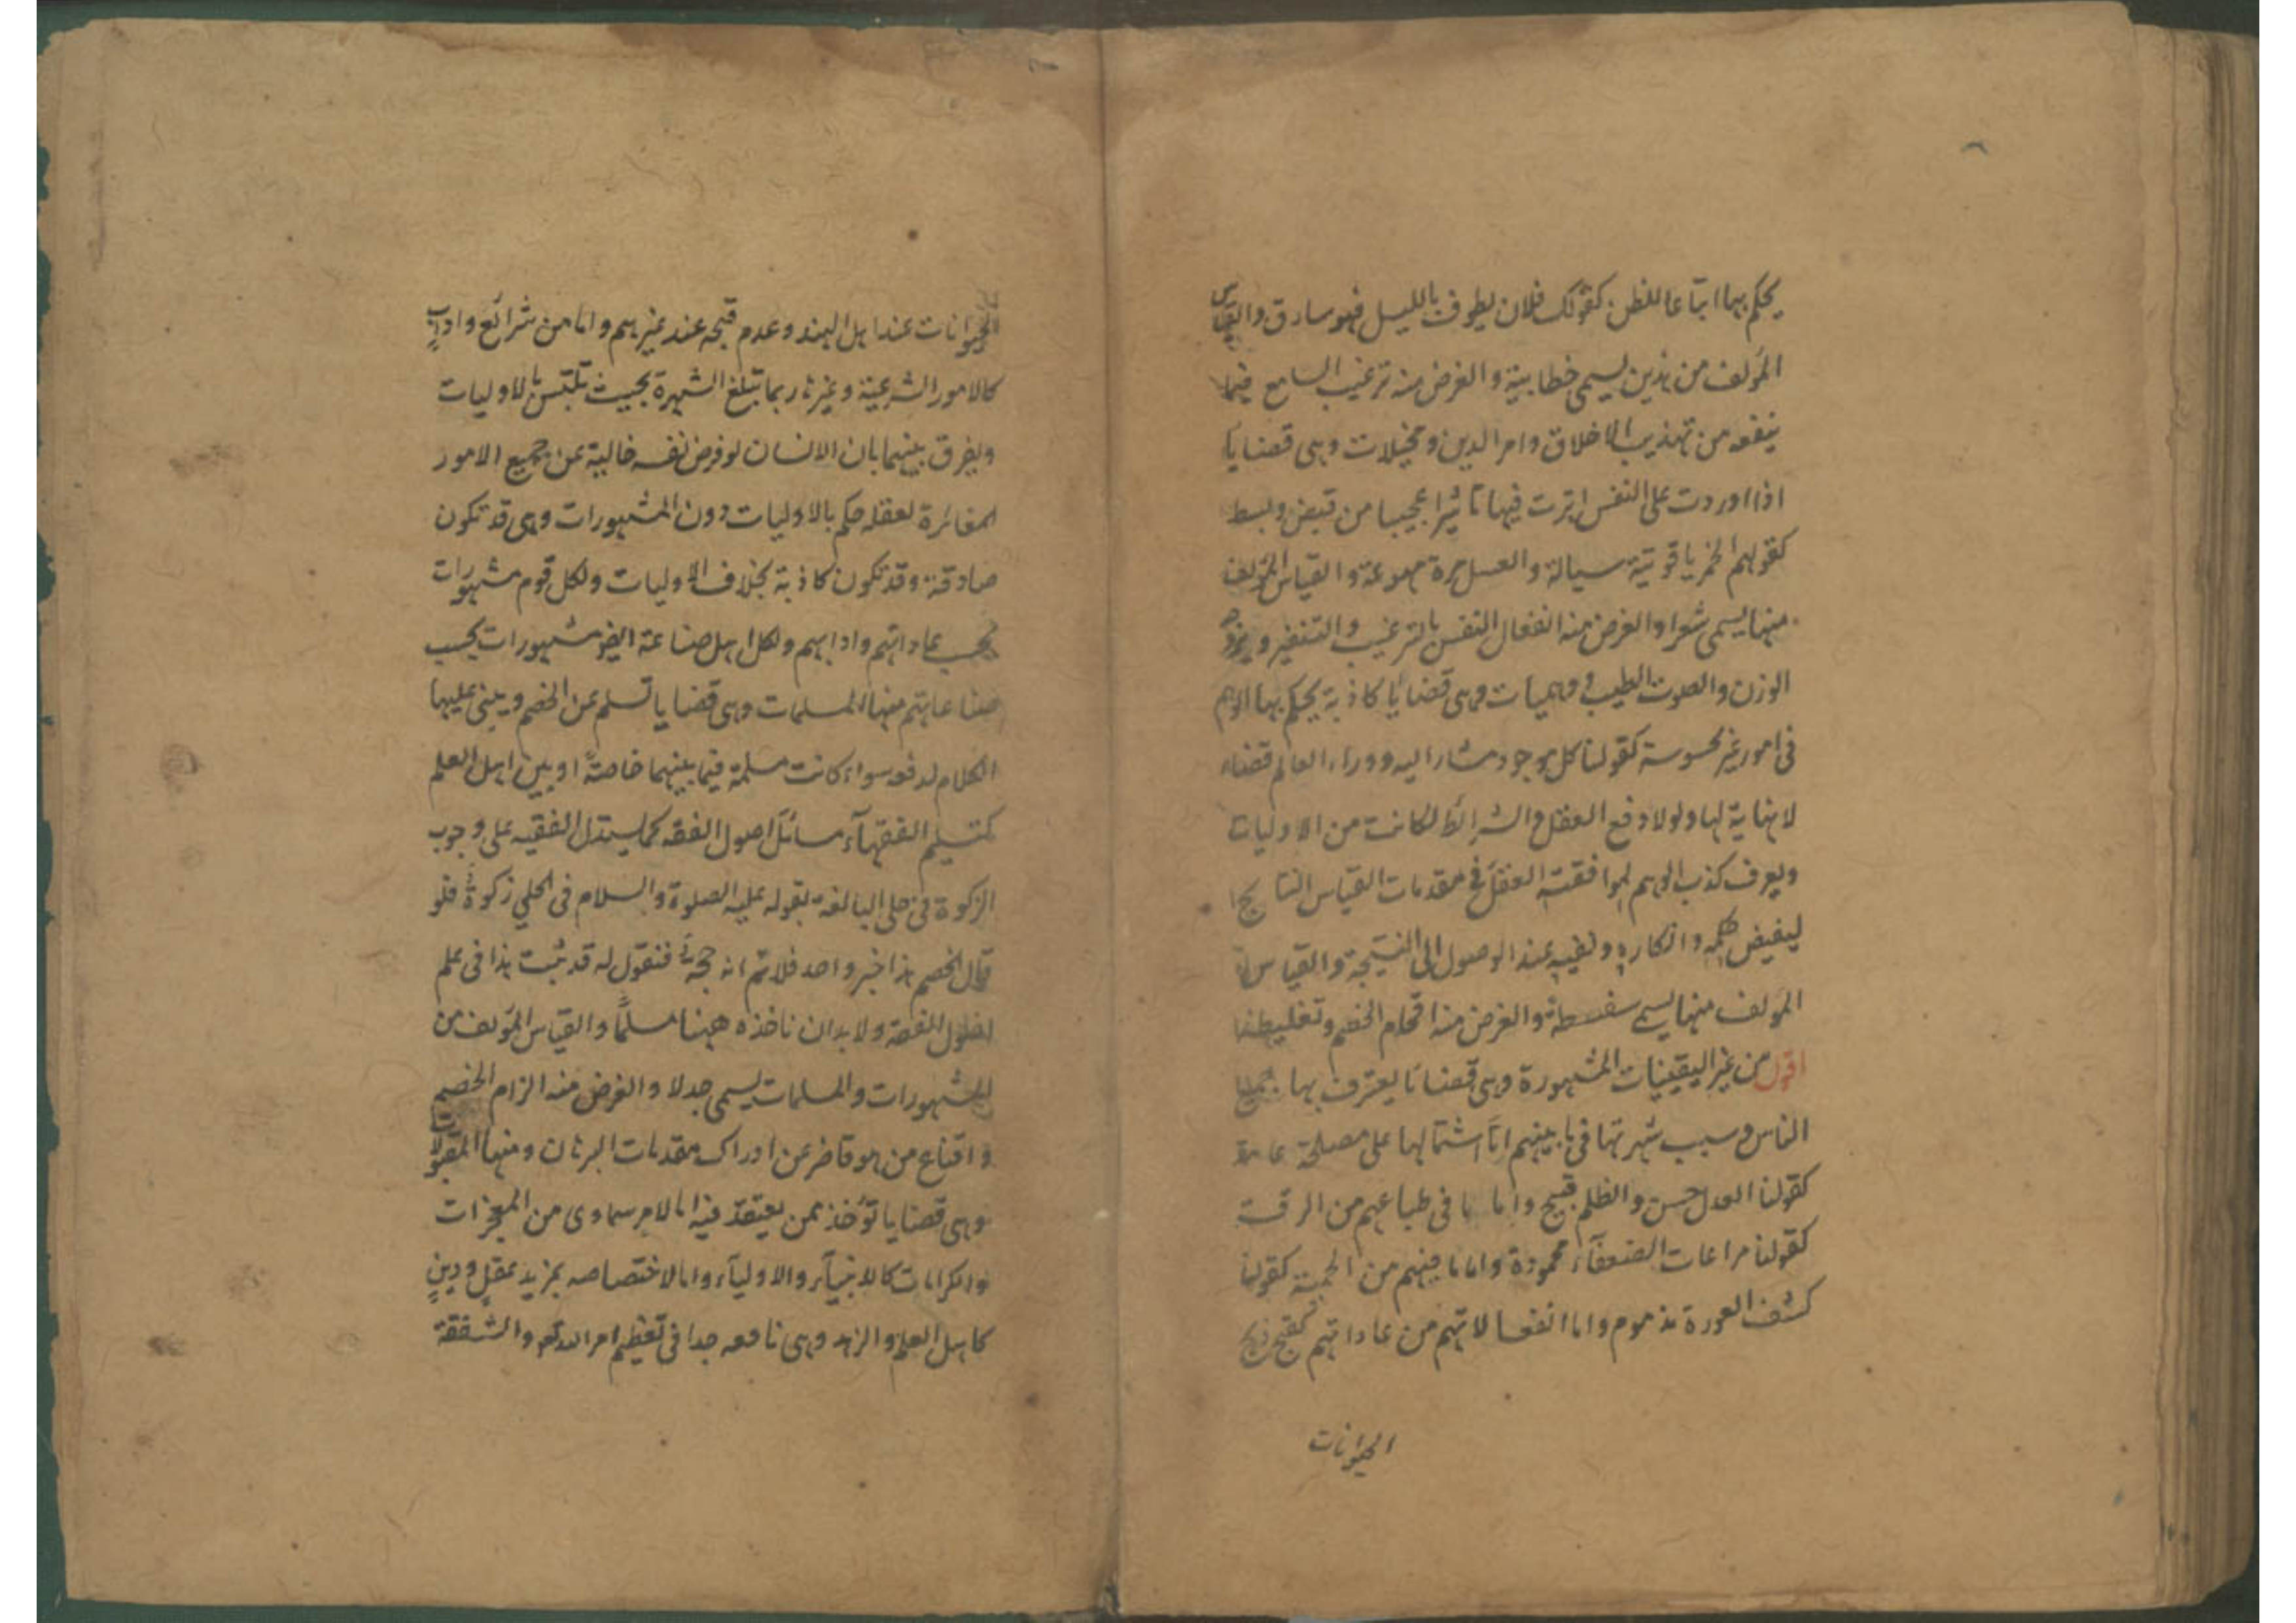 يحكم بها اتباعا للظن كقولك فلان يطوف بالليل فهو سارق والقياس
المؤلف من هذين يسمى خطابية والغرض منه ترغيب السامع فيما
ينفعه من تهذيب الاخلاق وامر الدين ومخيلات وهى قضايا
اذا اوردت على النفس اثرت فيها تاثيرا عجيبا من قبض وبسط
كقولهم الخمر ياقوتية سيالة والعسل مرة مهوعة والقياس المؤلف
منها يسمى شعرا والغرض منه انفعال النفس بالترغيب والتنفير ويروجه
الوزن والصوت الطيب ووهميات وهى قضايا كاذبة يحكم بها الوهم
فى امور غير محسوسة كقولنا كل موجود مشار اليه ووراء العالم فضاء
لا نهاية لها ولولا دفع العقل والشرائط لكانت من الاوليات
ويعرف كذب الوهم لموافقته العقل فى مقدمات القياس الناتج
لنقيض حكمه وانكاره ونفيه عند الوصول الى النتيجة والقياس
المؤلف منها يسمى سفسطة والغرض منه افحام الخصم وتغليطه
اقول من غير اليقينيات المشهورة وهى قضايا يعترف بها جميع
الناس وسبب شهرتها فى ما بينهم اما اشتمالها على مصلحة عامة
كقولنا العدل حسن والظلم قبيح واما ما فى طباعهم من الرقة
كقولنا مراعات الضعفاء محمودة واما ما فيهم من الحمية كقولنا
كشف العورة مذموم واما انفعالاتهم من عاداتهم كقبح ذبح
الحيوانات
الحيوانات عند اهل الهند وعدم قبحه عند غيرهم واما من شرائع واداب
كالامور الشرعية وغيرها ربما تبلغ الشهرة بحيث تلتبس بالاوليات
ويفرق بينهما بان الانسان لو فرض نفسه خالية عن جميع الامور
المغائرة لعقله حكم بالاوليات دون المشهورات وهى قد تكون
صادقة وقد تكون كاذبة بخلاف الاوليات ولكل قوم مشهورات
بحسب عاداتهم وادابهم ولكل اهل صناعة ايضا مشهورات بحسب
صناعاتهم منها المسلمات وهى قضايا تسلم عن الخصم ويبنى عليها
الكلام لدفعه سواء كانت مسلمة فيما بينهما خاصة او بين اهل العلم
كتسليم الفقهآء مسائل اصول الفقه كما يستدل الفقيه على وجوب
الزكوة فى حلى البالغة بقوله عليه الصلوة والسلام فى الحلي زكوة فلو
قال الخصم هذا خبر واحد فلا نم انه حجة فنقول له قد ثبت هذا فى علم
اصول الفقه ولا بد ان ناخذه ههنا مسلما والقياس المؤلف من
المشهورات والمسلمات يسمى جدلا والغرض منه الزام الخصم
واقناع من هو قاصر عن ادراك مقدمات البرهان ومنها المقبولات
وهى قضايا تؤخذ ممن يعتقد فيه اما لامر سماوى من المعجزات
والكرامات كالانبيآء والاوليآء واما لاختصاصه بمزيد عقل ودين
كاهل العلم والزهد وهى نافعه جدا فى تعظيم امر الله تع والشفقة